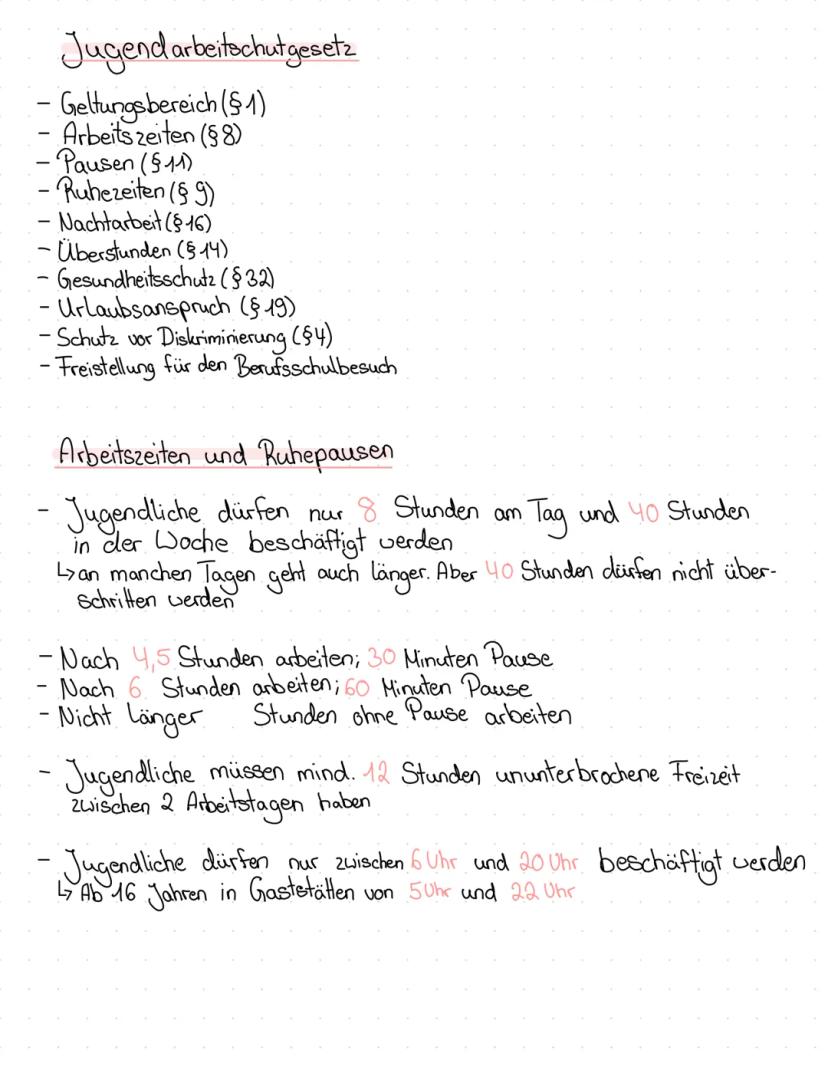 Jugendarbeitschutgesetz
- Geltungsbereich (§1)
- Arbeitszeiten (§8)
- Pausen (§11)
- Ruhezeiten (§ 9)
- Nachtarbeit (§16)
- Überstunden (§14)
- Gesundheitsschutz (§32)
- Urlaubsanspruch (§19)
- Schutz vor Diskriminierung (§4)
- Freistellung für den Berufsschulbesuch
Arbeitszeiten und Ruhepausen
- Jugendliche dürfen nur 8 Stunden am Tag und 40 Stunden
in der Woche beschäftigt werden
↳ an manchen Tagen geht auch länger. Aber 40 Stunden dürfen nicht über-
schritten werden
- Nach 4,5 Stunden arbeiten; 30 Minuten Pause
- Nach 6 Stunden arbeiten; 60 Minuten Pause
- Nicht länger Stunden ohne Pause arbeiten
- Jugendliche müssen mind. 12 Stunden ununterbrochene Freizeit
zwischen 2 Arbeitstagen haben
- Jugendliche dürfen nur zwischen 6 Uhr und 20 Uhr beschäftigt werden
↳ Ab 16 Jahren in Gaststätten von 5 Uhr und 22 Uhr